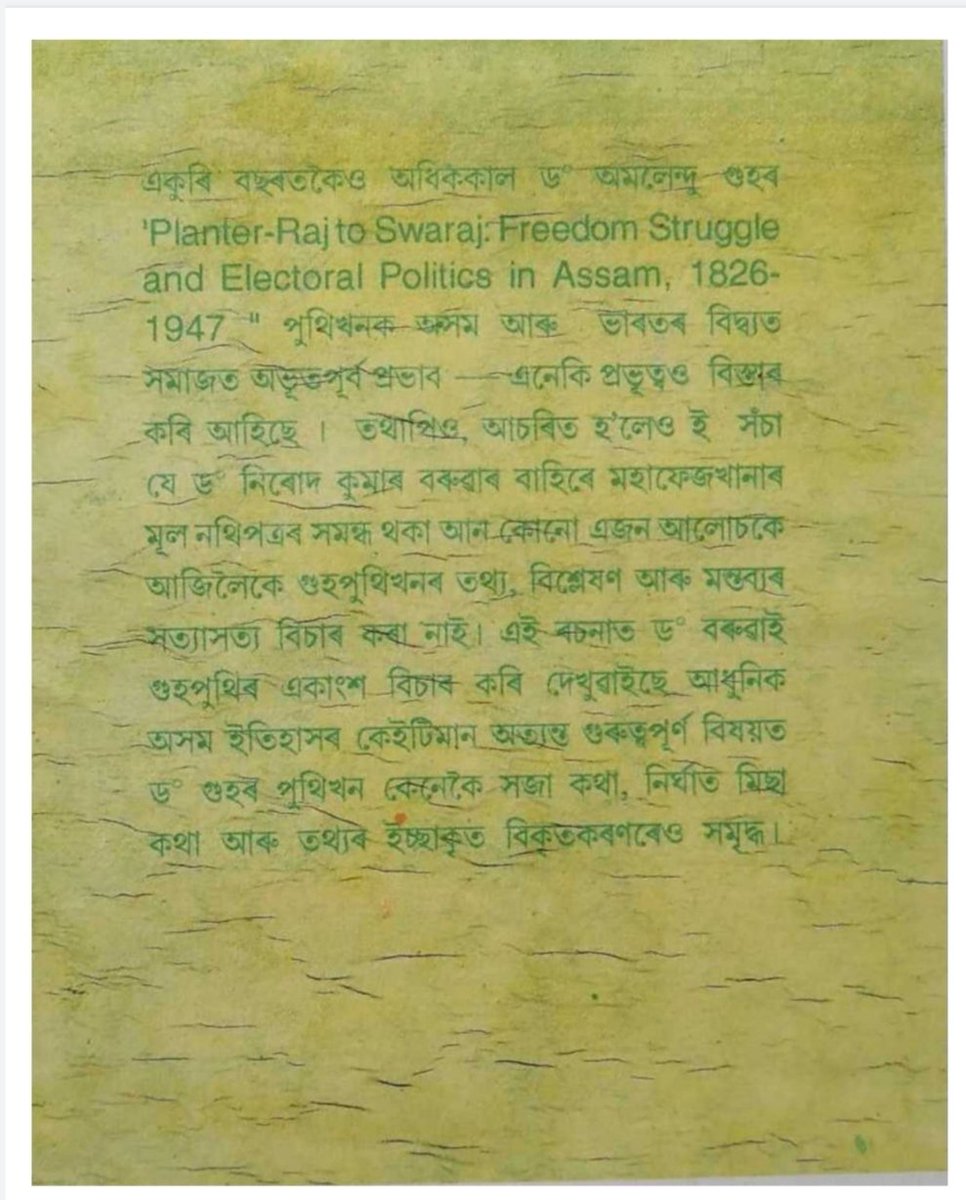 একুৰি বছৰতকৈও অধিককাল ড° অমলেন্দু গুহৰ
'Planter-Raj to Swaraj: Freedom Struggle
and Electoral Politics in Assam, 1826-
1947 " পুথিখনক অসম আৰু ভাৰতৰ বিদ্যত
সমাজত অভূতপূৰ্ব প্ৰভাব — এনেকি প্ৰভূত্বও বিস্তাৰ
কৰি আহিছে । তথাপিও, আচৰিত হ'লেও ই সঁচা
যে ড° নিৰোদ কুমাৰ বৰুৱাৰ বাহিৰে মহাফেজখানাৰ
মূল নথিপত্ৰৰ সমন্ধ থকা আন কোনো এজন আলোচকে
আজিলৈকে গুহপুথিখনৰ তথ্য, বিশ্লেষণ আৰু মন্তব্যৰ
সত্যাসত্য বিচাৰ কৰা নাই। এই ৰচনাত ড° বৰুৱাই
গুহপুথিৰ একাংশ বিচাৰ কৰি দেখুৱাইছে আধুনিক
অসম ইতিহাসৰ কেইটিমান অত্যন্ত গুৰুত্বপূৰ্ণ বিষয়ত
ড° গুহৰ পুথিখন কেনেকৈ সজা কথা, নিৰ্ঘাত মিছা
কথা আৰু তথ্যৰ ইচ্ছাকৃত বিকৃতকৰণৰেও সমৃদ্ধ।